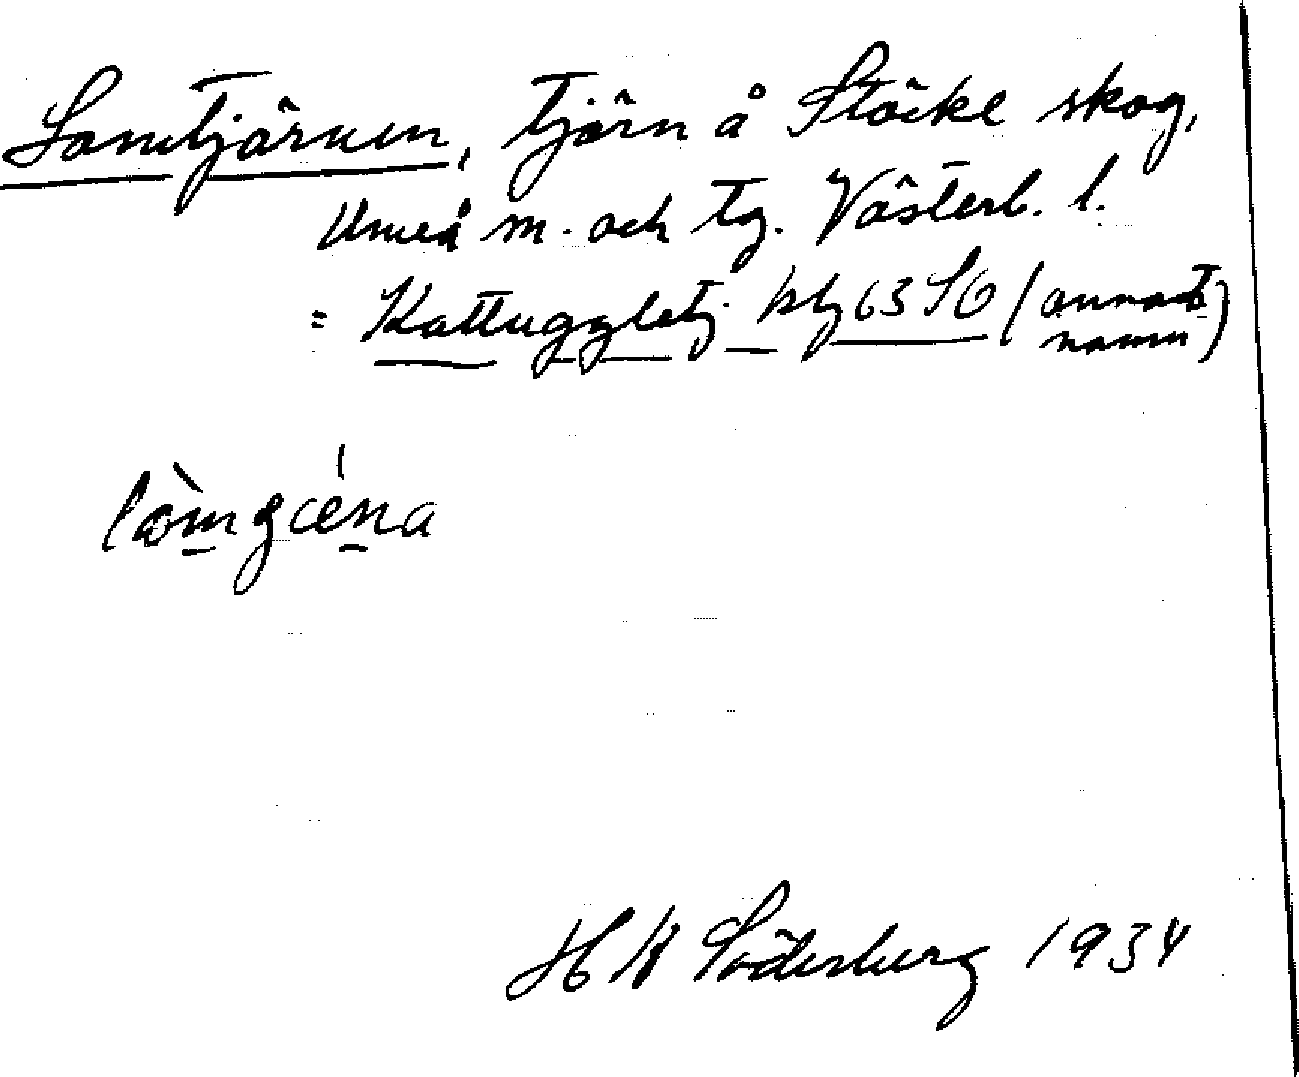 Lomtjärnen, tjärn å Stöcke skog,
Umeå m. och tg. Västerb. l.
= Kattuggletj. kbl 63 SO (annat
namn)
lòmgæ̀na
H W Söderberg 1934